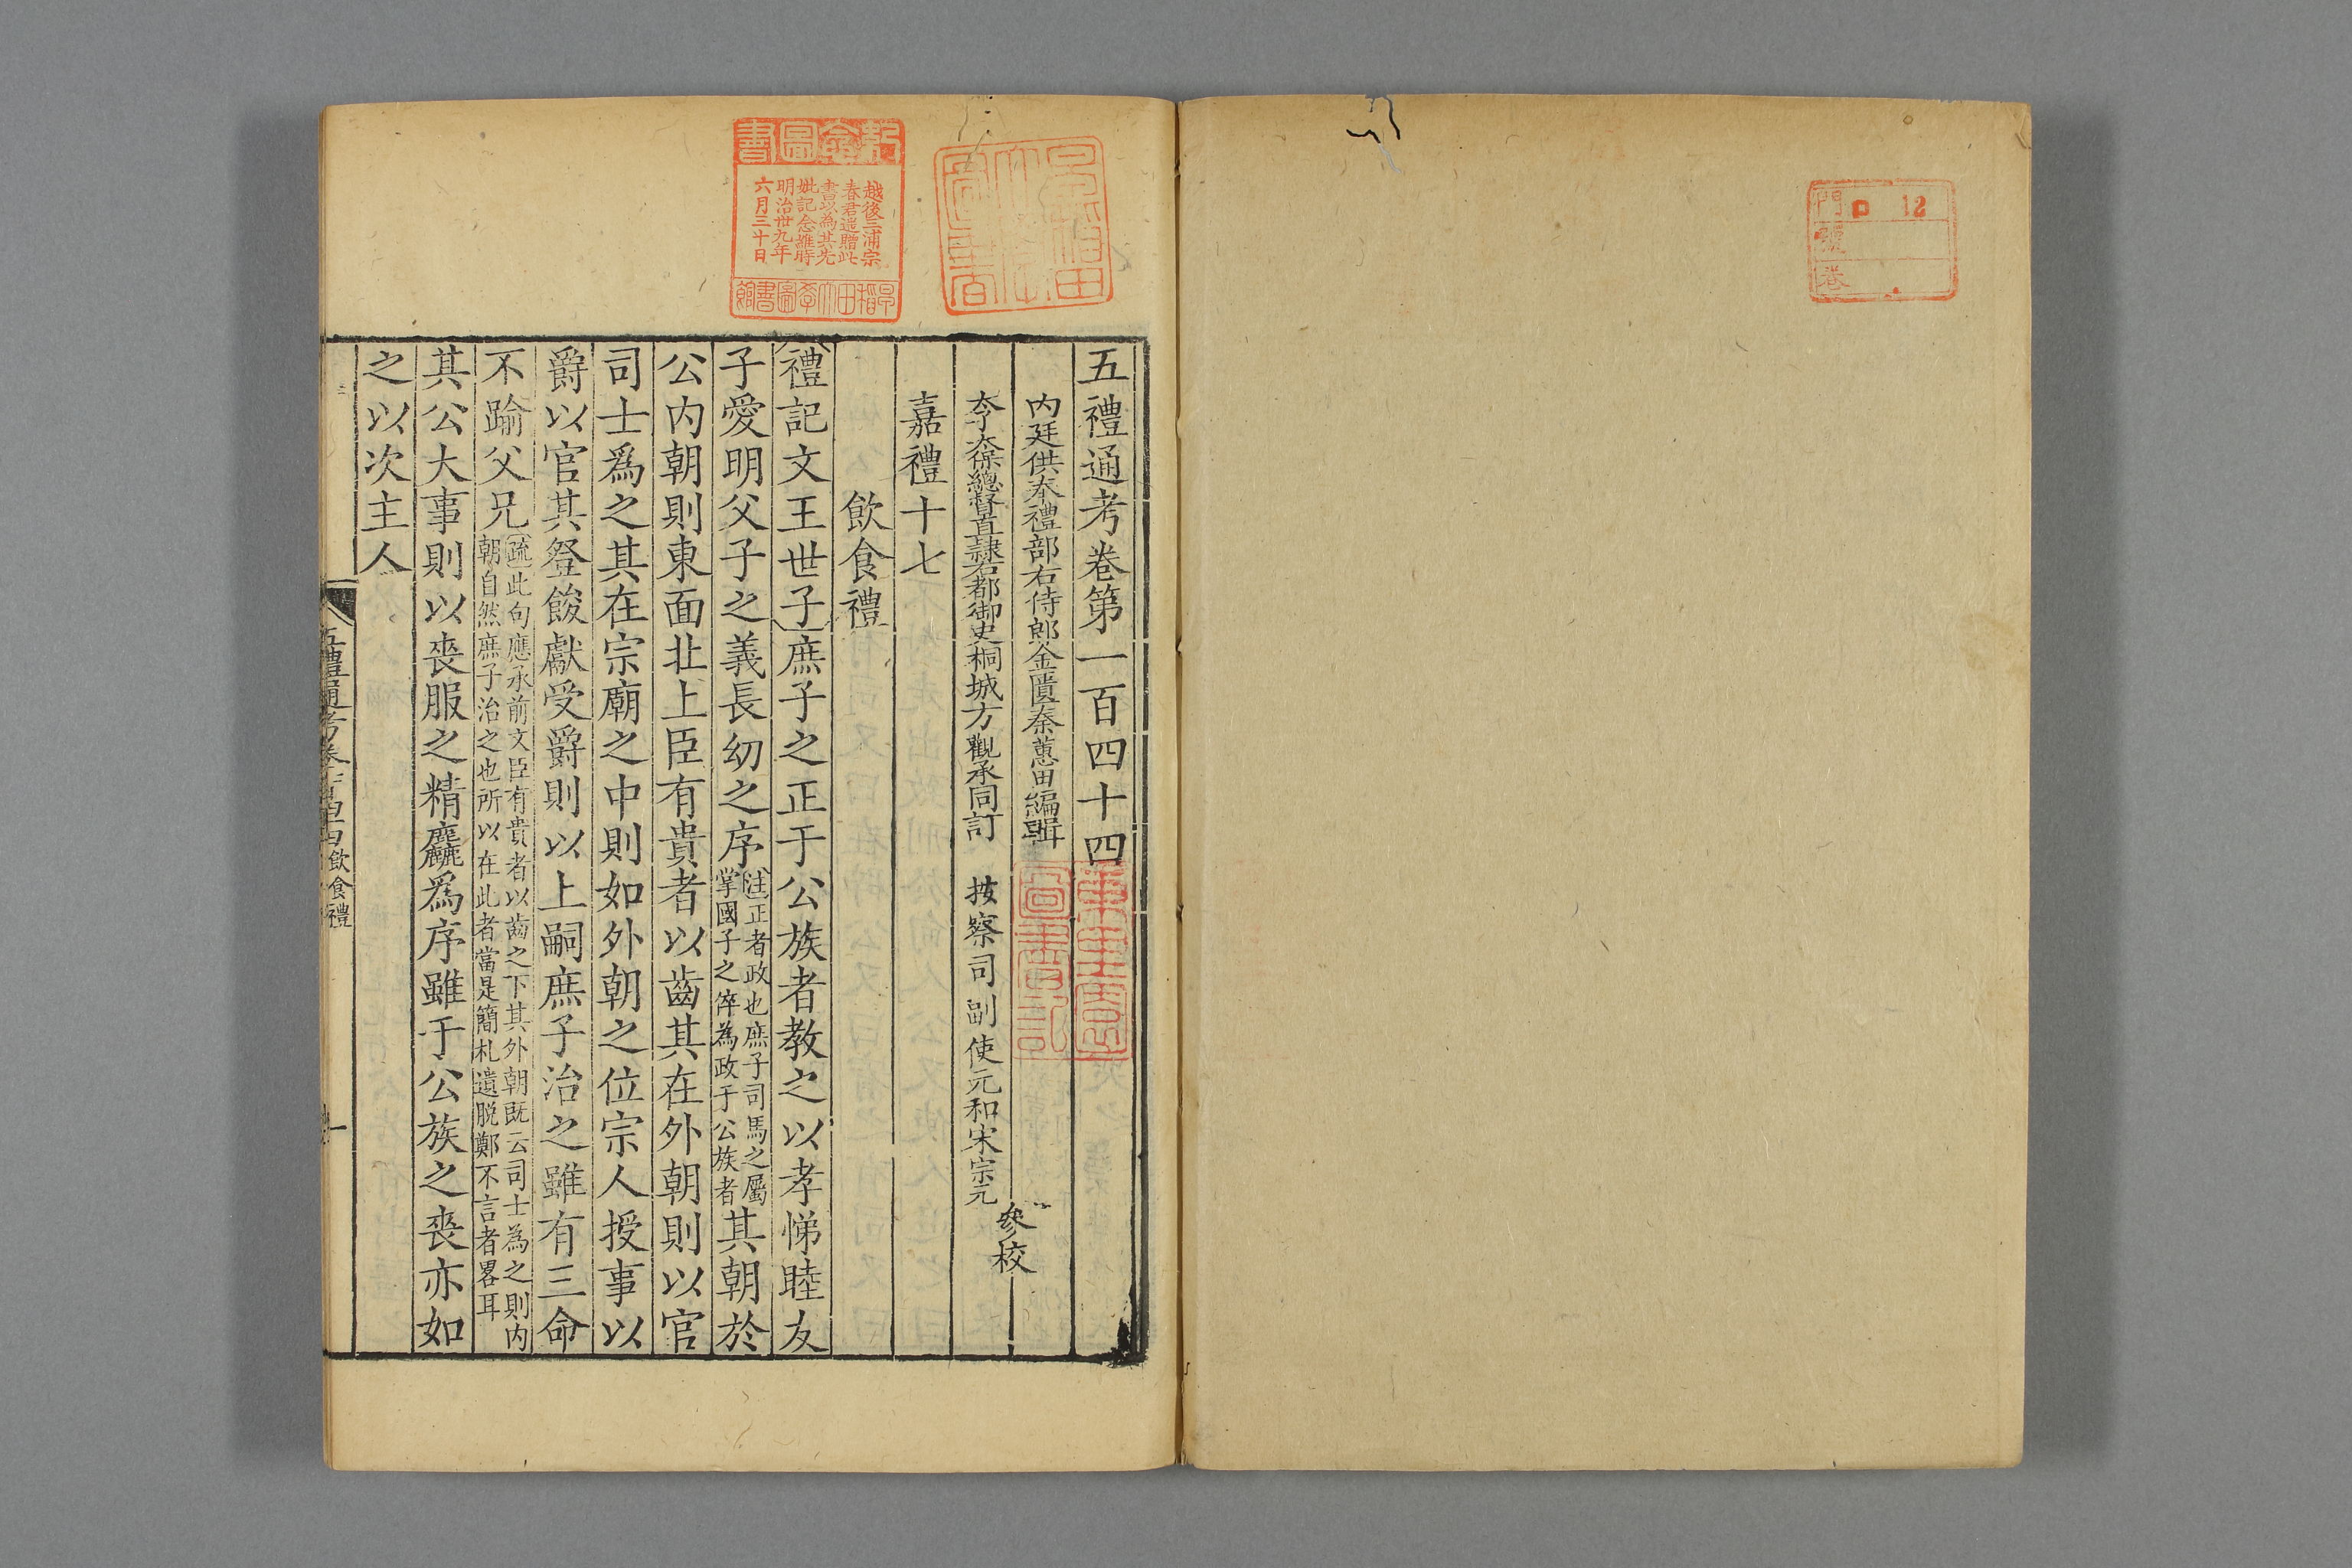 門 口 12
號
巻
早稲田大學圖書
越後三浦宗
春君遥贈此
書以為其先
妣記念維時
明治卅九年
六月三十日
早稲田大學圖書館
五禮通考卷第一百四十四
内廷供奉禮部右侍郎金匱秦蕙田編輯
太子太保總督直隸右都御史桐城方觀承同訂 按察司副使元和宋宗元
參校
嘉禮十七
飲食禮
禮記文王世子庶子之正于公族者教之以孝悌睦友
子愛明父子之義長幼之序注正者政也庶子司馬之屬掌國子之倅為政于公族者其朝於
公内朝則東面北上臣有貴者以齒其在外朝則以官
司士爲之其在宗廟之中則如外朝之位宗人授事以
爵以官其登餕獻受爵則以上嗣庶子治之雖有三命
不踰父兄疏此句應承前文臣有貴者以齒之下其外朝既云司士為之則内朝自然庶子治之也所以在此者當是簡札遺脱鄭不言者畧耳
其公大事則以喪服之精麤爲序雖于公族之喪亦如
之以次主人
五禮通考卷一百四十四 飲食禮
一